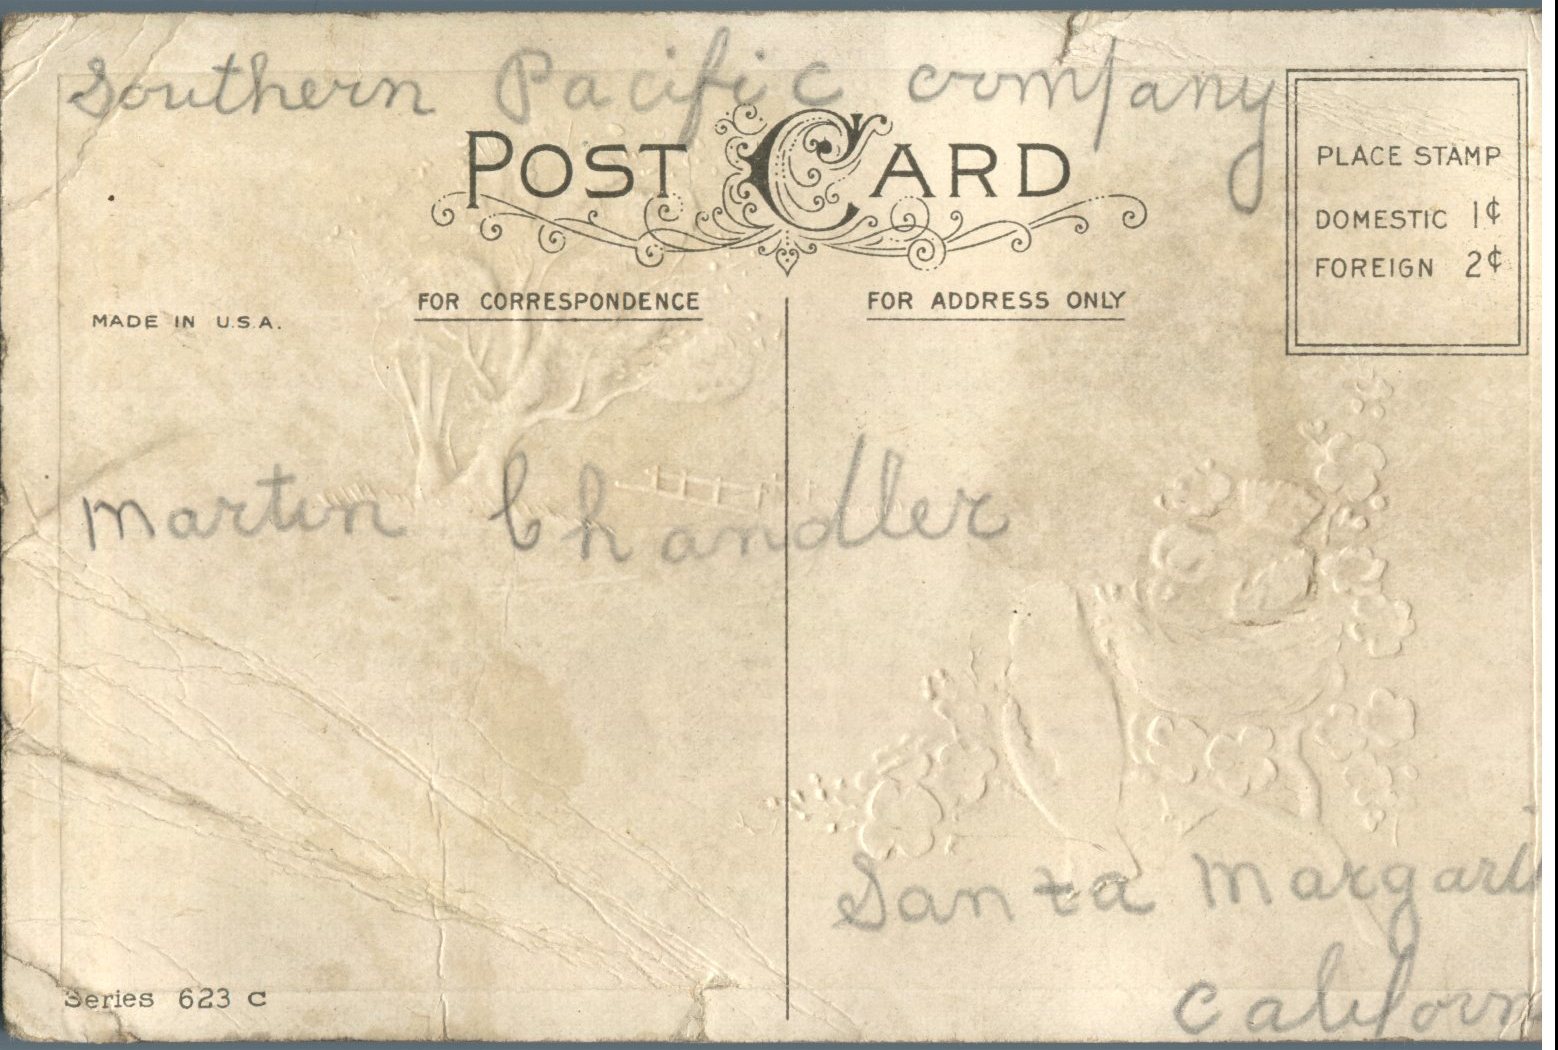 Southern Pacific company
POST CARD
PLACE STAMP
DOMESTIC 1¢
FOREIGN 2¢
FOR CORRESPONDENCE
FOR ADDRESS ONLY
MADE IN U.S.A.
Martin Chandler
Santa Margarit
Californ
Series 623 C